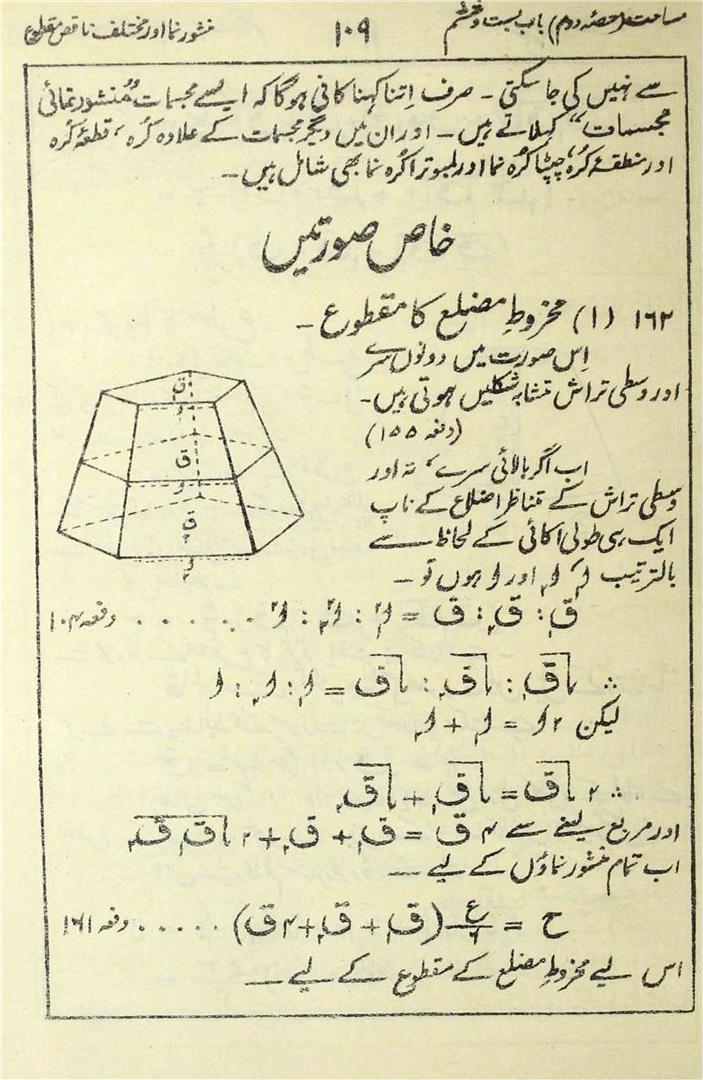 مساحت (حصّہ دوم) باب بست و ششم
۱۰۹
منشور نما اور مختلف ناقص مقطوع
سے نہیں کی جا سکتی ۔ صرف اِتنا کہنا کافی ہوگا کہ ایسے مجسمات ”منشور نمائی
مجسمات“ کہلاتے ہیں ۔ اور ان میں دیگر مجسمات کے علاوہ کُرہ ، قطعۂ کُرہ
اور منطقۂ کُرہ، چپٹا کُرہ نما اور لمبوترا کُرہ نما بھی شامل ہیں ۔
خاص صورتیں
۱۶۲ (۱) مخروطِ مضلع کا مقطوع ۔
اِس صورت میں دونوں سرے
اور وسطی تراش متشابہ شکلیں ہوتی ہیں ۔
(دفعہ ۱۵۵)
اب اگر بالائی سرے ، تہ اور
وسطی تراش کے متناظر اضلاع کے ناپ
ایک ہی طولی اکائی کے لحاظ سے
بالترتیب ا۱، ا۲ اور ا ہوں تو ۔
ق۱ : ق۲ : ق = ا۱² : ا۲² : ا² . . . . . . دفعہ ۱۰۴
∴ √ق۱ : √ق۲ : √ق = ا۱ : ا۲ : ا
لیکن ۲ا = ا۱ + ا۲
∴ ۲ √ق = √ق۱ + √ق۲
اور مربع لینے سے ۴ ق = ق۱ + ق۲ + ۲ √ق۱ ق۲
اب تمام منشور نماؤں کے لیے ۔
ح = ع/۶ (ق۱ + ق۲ + ۴ ق) . . . . . دفعہ ۱۶۱
اس لیے مخروطِ مضلع کے مقطوع کے لیے ۔
ق۱
ا۱
ق
ا
ق۲
ا۲